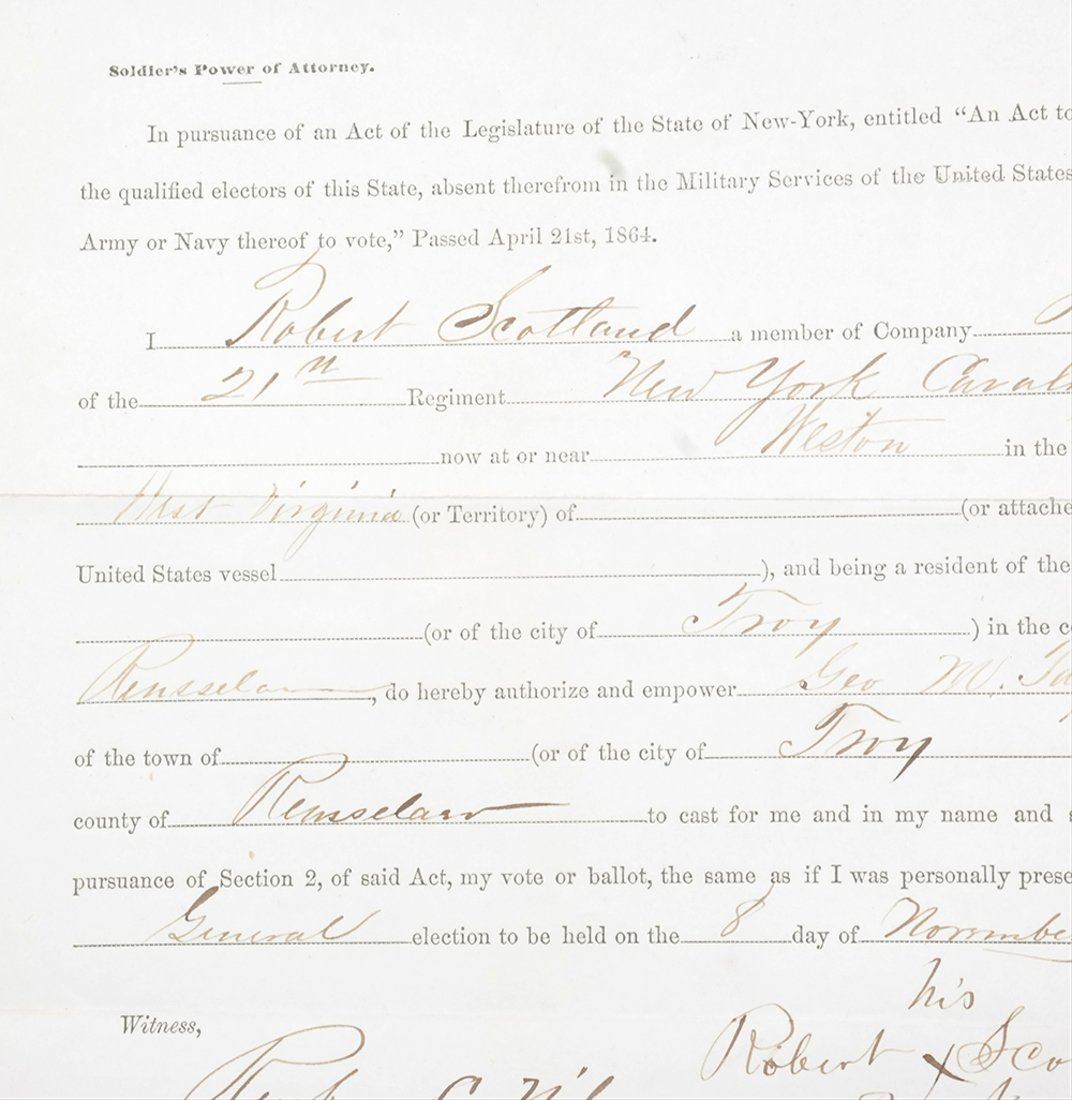 Soldier's Power of Attorney.
In pursuance of an Act of the Legislature of the State of New-York, entitled "An Act to
the qualified electors of this State, absent therefrom in the Military Services of the United States
Army or Navy thereof to vote," Passed April 21st, 1864.
I Robert Scotland a member of Company
of the 21st Regiment New York Caval
now at or near Weston in the
West Virginia (or Territory) of (or attache
United States vessel ), and being a resident of the
(or of the city of Troy ) in the c
Rensselaer, do hereby authorize and empower Geo M.
of the town of (or of the city of Troy
county of Rensselaer to cast for me and in my name and
pursuance of Section 2, of said Act, my vote or ballot, the same as if I was personally prese
General election to be held on the 8 day of Novembe
his
Witness,
Robert X Sco